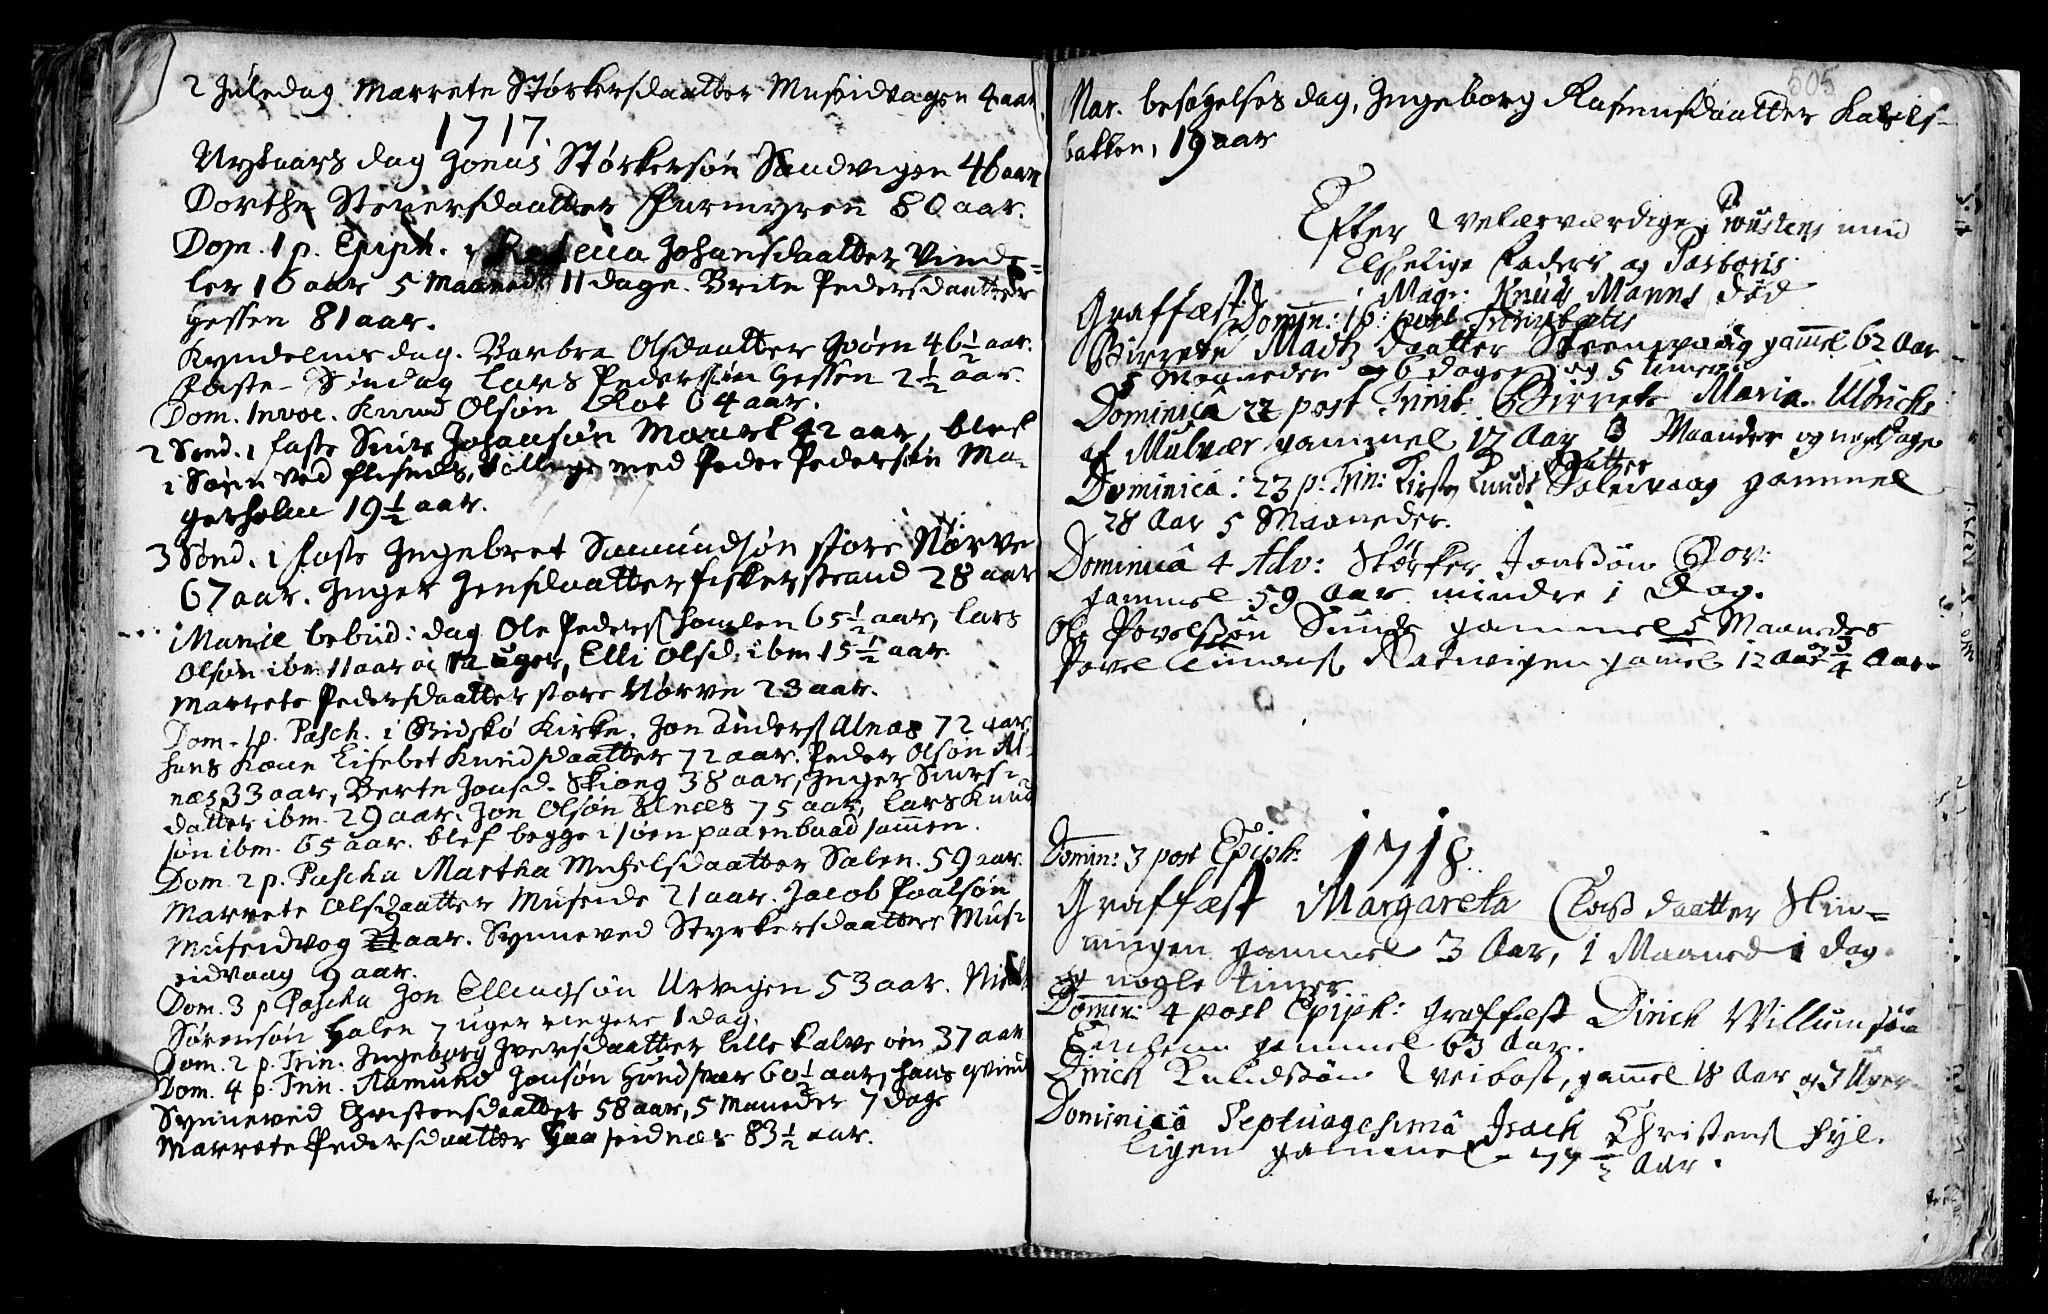 2 Juledag Marrete Størkersdaatter Museidvagen 4 aar.
1717.
Nytaars dag Jonas Størkersøn Sandvigen 46 aar
Dorthe Steuersdaatter Furmyren 80 aar.
Dom. 1 p. Epiph. Johansdaatter Vinde-
ler 16 aar 5 maaned 11 dage. Brite Pedersdaatter
Hessen 81 aar.
Kyndelms dag. Barbra Olsdaatter 46 1/2 aar.
Faste-Søndag Lars Pedersøn Hessen 2 1/2 aar.
Dom. Invoc. Knud Olsøn 64 aar.
2 Sønd. i faste Siur Johansøn 42 aar, blef
i Søen ved tillige med Peder Pedersøn Ma-
gerholm 19 1/2 aar.
3 Sønd. i faste Ingebret Samundsøn store Nørve
67 aar. Inger Jensdaatter fiskerstrand 28 aar
Mariæ bebud: dag Ole Peders Humlen 65 1/2 aar, Lars
Olsøn ibm 11 aar oc uger, Elli Olsd. ibm 15 1/2 aar.
Marrete Pedersdaatter store Nørve 23 aar.
Dom. 1 p. Pasch. i Gidskø Kirke. Jon Anders Alnæs 72 aar
hans Kone Lisebet Knudsdaatter 72 aar. Peder Olsøn Al-
næs 33 aar, Berte Jonsd. Skiong 38 aar, Inger Siurs-
datter ibm. 29 aar. Jon Olsøn Alnæs 75 aar, Lars Knud
søn ibm. 65 aar. blef begge i søen paa en baad sammen.
Dom. 2 p. Pascha Martha Michelsdaatter Salen. 59 aar.
Marrete Olsdaatter Museide 21 aar. Jacob Poalsøn
Museidvog aar. Synneved Styrkersdaatter Mus-
eidvaag 9 aar.
Dom. 3 p Pascha Jon Ellingsøn Urvigen 53 aar. Niels
Sørensøn Halen 7 uger ringere 1 dag.
Dom. 2 p. Trin. Ingeborg Iversdaatter lille Kalve øen 37 aar
Dom. 4 p. Trin. Aamund Jonsøn Hundsvær 60 1/2 aar, hans qvinde
Synneved Christensdaatter 58 aar, 5 maneder 7 dage
Marrete Pedersdaatter 83 1/2 aar.
505
Mar. besøgelses dag, Ingeborg Rasmusdaatter Kals-
bakken, 19 aar
Efter Velærværdige Proustens min
Elskelige faders og Pastoris
Magr: Knuds Manns død
Graffæst Domin: 1 p: post Trinitatis
Birrete Madtz daatter Steenvaag gammel 62 Aar
5 Maaneder og 6 dage og 5 timer
Dominica 22 post Trinit: Birrete Maria Ulrichs
af Mulvær gammel 12 Aar 3 Maander og nogle dage
Dominica: 23 p: Trin: Kirsty Knuds daatter Solevaag gammel
28 Aar 5 Maaneder.
Dominica 4 Adv: Størker Jonssøn
gammel 59 Aar mindre 1 Dag.
Ole Povelssøn Sunde gammel 5 Maaneder
Povel gamel 12 Aar og 3/4 Aar.
1718.
Domin: 3 post Epiph:
Graffæst Margareta Clas daatter Slin-
ningen gammel 3 Aar, 1 Maaned 1 dag
og nogle timer
Domin: 4 post Epiph: graffæst Dirich Willumsøn
gammel 63 Aar.
Dirich Knudssøn Veibost, gamel 18 Aar og 7 Uger
Dominica Septuagesima Isach Christens Fyl-
lingen gammel 77 1/2 Aar.